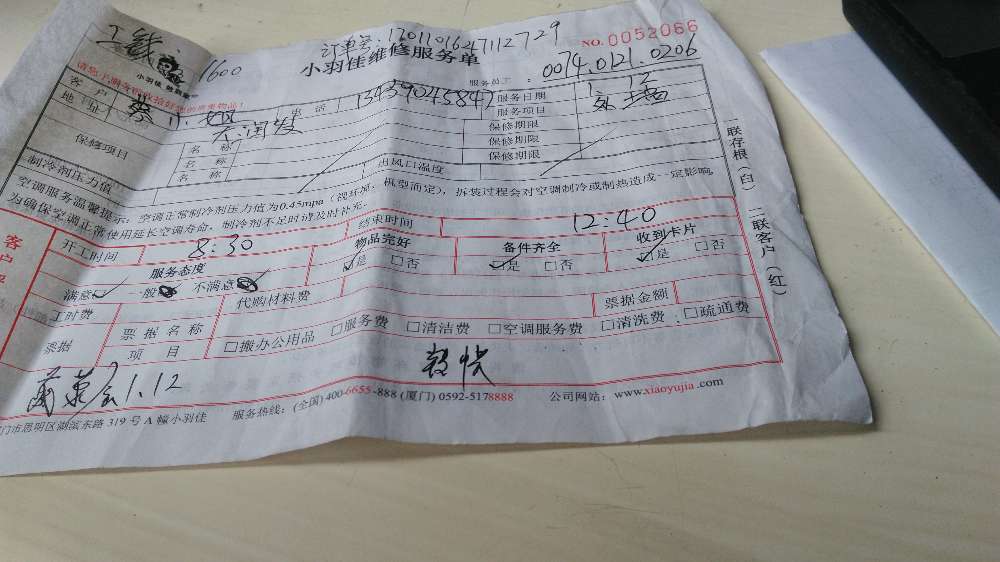 订单号:17011016247112729
小羽佳维修服务单
NO.0052066
1600
小羽佳
服务员工:0074.0121.0206
客户
电话 13459045847
服务日期 1.12
地址 大润发
服务项目
保修项目
名称
保修期限
名称
保修期限
名称
保修期限
制冷剂压力值
出风口温度
空调服务温馨提示:空调正常制冷剂压力值为0.45mpa(视环境、机型而定),拆装过程会对空调制冷或制热造成一定影响,
为确保空调正常使用延长空调寿命,制冷剂不足时请及时补充。
开工时间 8:30
结束时间 12:40
服务态度
物品完好
备件齐全
收到卡片
满意 一般 不满意
是 □否
是 □否
是 □否
工时费
代购材料费
票据
票据名称
票据金额
项目
□搬办公用品 □服务费 □清洁费 □空调服务费 □清洗费 □疏通费
1.12
门市思明区湖滨东路319号A幢小羽佳 服务热线:(全国)400-6655-888 (厦门)0592-5178888 公司网站:www.xiaoyujia.com
一联存根(白) 二联客户(红)